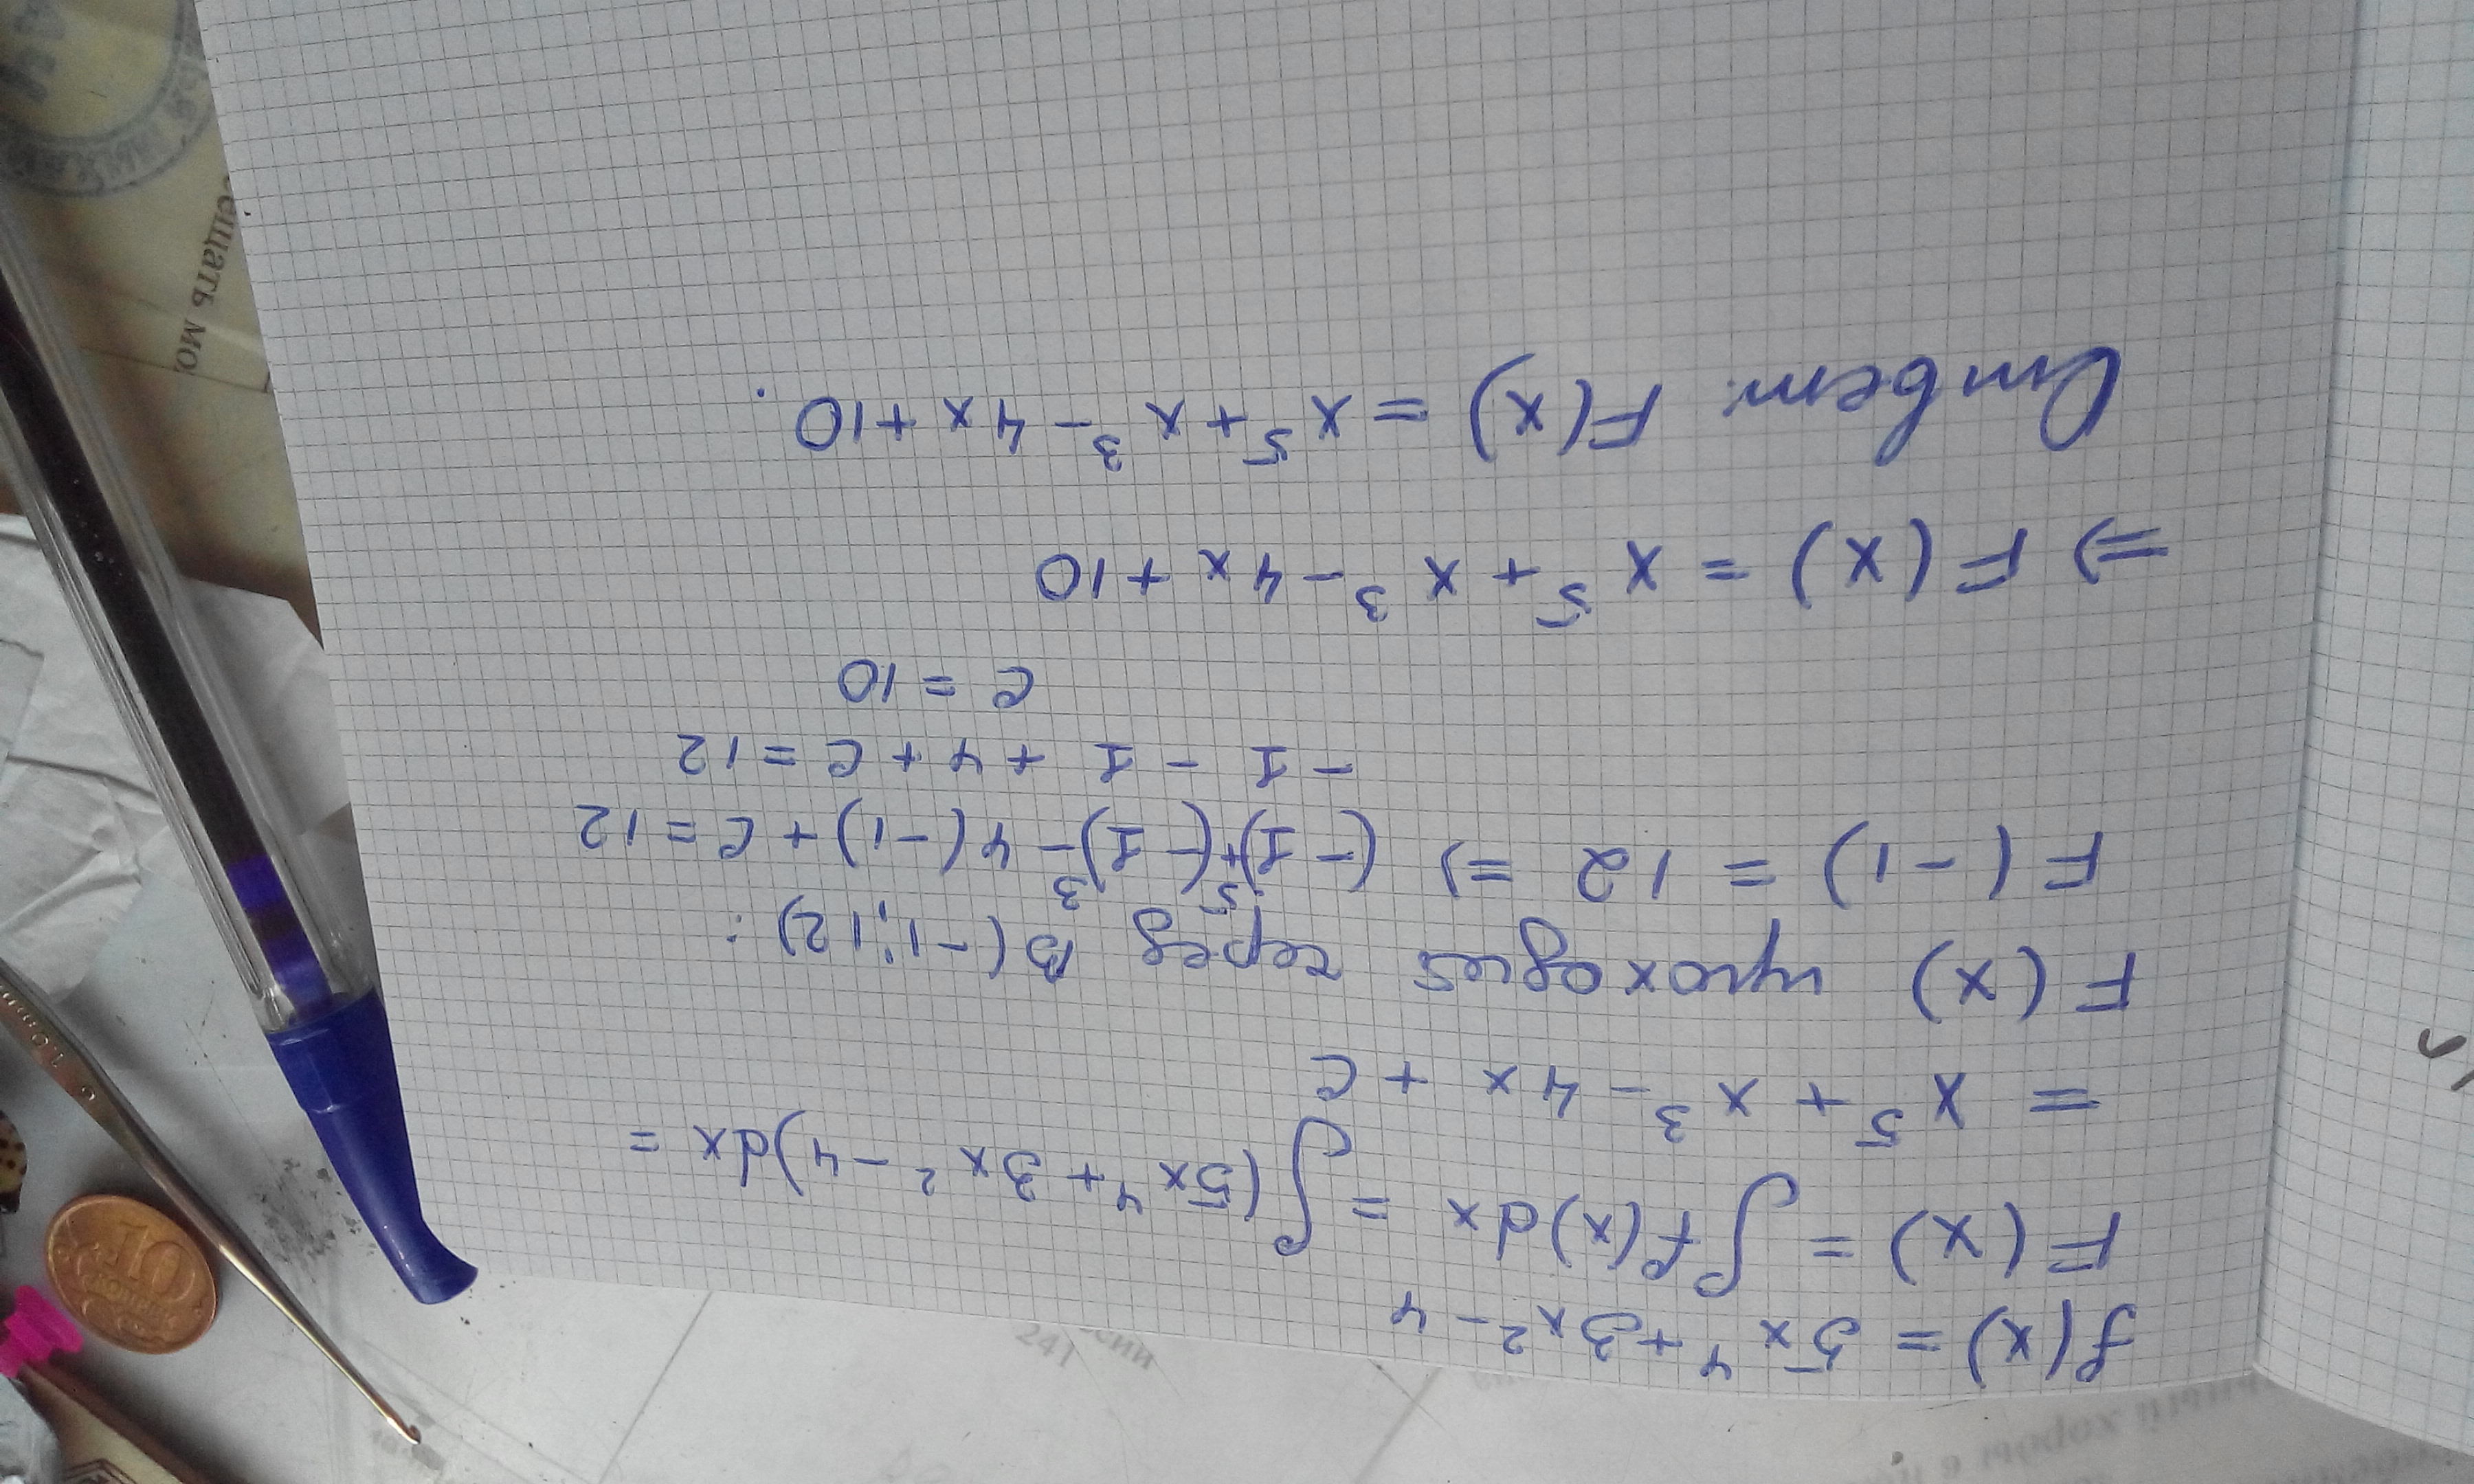 f(x) = 5x⁴+3x²-4
F(x) = ∫f(x)dx = ∫(5x⁴+3x²-4)dx =
= x⁵+x³-4x+c
F(x) проходит через B(-1;12):
F(-1) = 12 => (-1)⁵+(-1)³-4(-1)+c=12
-1-1+4+c=12
c=10
=> F(x) = x⁵+x³-4x+10
Ответ: F(x) = x⁵+x³-4x+10.
241
10
1.0mm